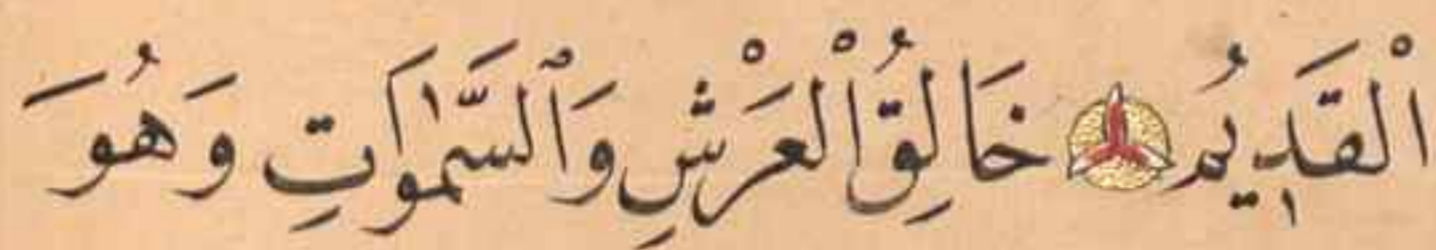 الْقَدِيمُ خَالِقُ الْعَرْشِ وَٱلسَّمٰوَاتِ وَهُوَ